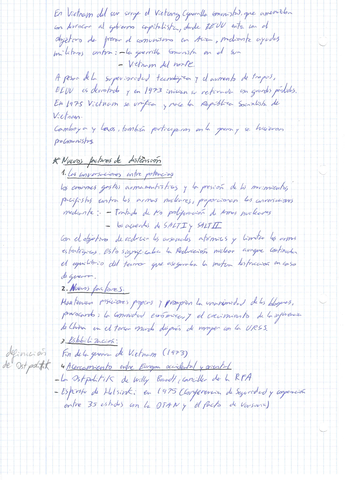 En Vietnam del sur surge el Vietcong (guerrilla comunista), que
al gobierno capitalista, donde EEUU entra con el
objetivo de frenar el comunismo en Asia, mediante ayudas
militares contra: - la guerrilla comunista en el sur
- Vietnam del norte.
A pesar de la superioridad tecnológica y el aumento de tropas,
EEUU es derrotado y en 1973 inician su retirada con grandes pérdidas.
En 1975 Vietnam se unifica y nace la República Socialista de
Vietnam.
Camboya y Laos también participaron en la guerra y se hicieron
* Nuevos factores de distensión
1. Las conversaciones entre potencias
Los enormes gastos armamentísticos y la presión de los movimientos
pacifistas contra las armas nucleares, propiciaron las conversaciones
mediante: - Tratado de No proliferación de Armas nucleares
- Los acuerdos de SALT I y SALT II
Con el objetivo de reducir los arsenales atómicos y limitar las armas
estratégicas. Esto la nuclear aunque continuaba
el equilibrio del terror que aseguraba la mutua destrucción en caso
de guerra.
2. Nuevos factores:
Mantienen posiciones propias y la de los bloques,
provocando: la comunidad económica y el crecimiento de la influencia
de China en el tercer mundo después de romper con la URSS.
3. Estabilización:
Fin de la guerra de Vietnam (1973)
4. Acercamiento entre Europa occidental y oriental
- La Ostpolitik de Willy Brandt, canciller de la RFA
- Espíritu de Helsinki: en 1975 (Conferencia de Seguridad y cooperación
entre 35 estados con la OTAN y el Pacto de Varsovia)
definición
de Ostpolitik